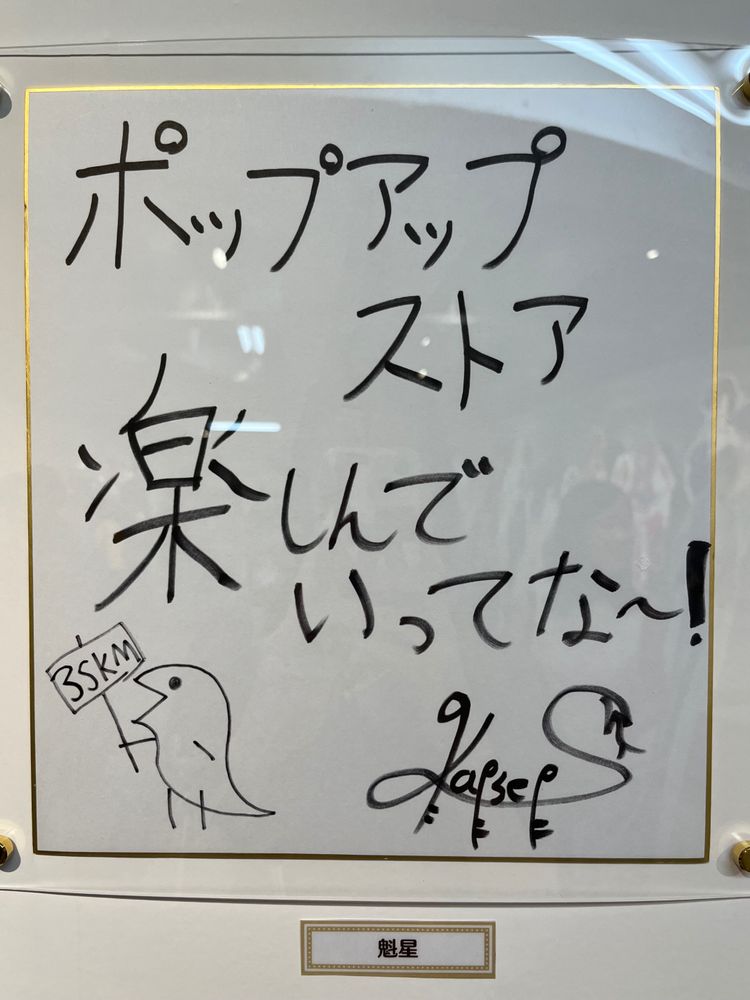 ポップアップ
ストア
楽しんで
いってな〜!
35KM
魁星